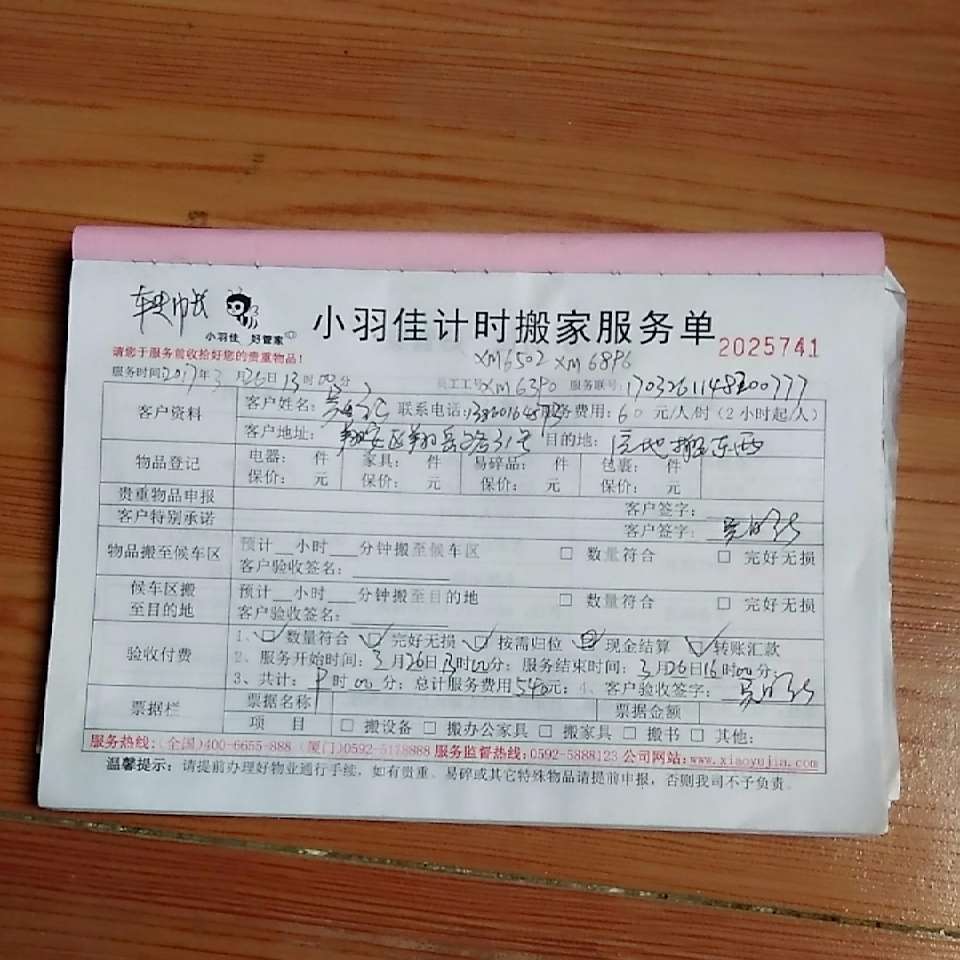 小羽佳 好管家
小羽佳计时搬家服务单
2025741
请您于服务前收拾好您的贵重物品!
XM6502 XM6896
服务时间2017年3月26日13时00分 员工工号XM6390 服务联号:
客户资料
客户姓名: 联系电话: 服务费用:60元/人/时(2小时起/人)
客户地址:翔安区翔岳路31号 目的地:原地搬东西
物品登记
电器: 件 家具: 件 易碎品: 件 包裹: 件
保价: 元 保价: 元 保价: 元 保价: 元
贵重物品申报 客户签字:
客户特别承诺 客户签字:
物品搬至候车区
预计__小时___分钟搬至候车区 □ 数量符合 □ 完好无损
客户验收签名:
候车区搬
至目的地
预计__小时___分钟搬至目的地 □ 数量符合 □ 完好无损
客户验收签名:
验收付费
1、☑数量符合 ☑完好无损 ☑按需归位 现金结算 ☑转账汇款
2、服务开始时间:3月26日13时00分;服务结束时间:3月26日16时00分;
3、共计: 时00分;总计服务费用540元;4、客户验收签字:
票据栏
票据名称 票据金额
项 目 □ 搬设备 □ 搬办公家具 □ 搬家具 □ 搬书 □ 其他:
服务热线:(全国)400-6655-888 (厦门)0592-5178888 服务监督热线:0592-5888123 公司网站:www.xiaoyujia.com
温馨提示:请提前办理好物业通行手续,如有贵重、易碎或其它特殊物品请提前申报,否则我司不予负责。